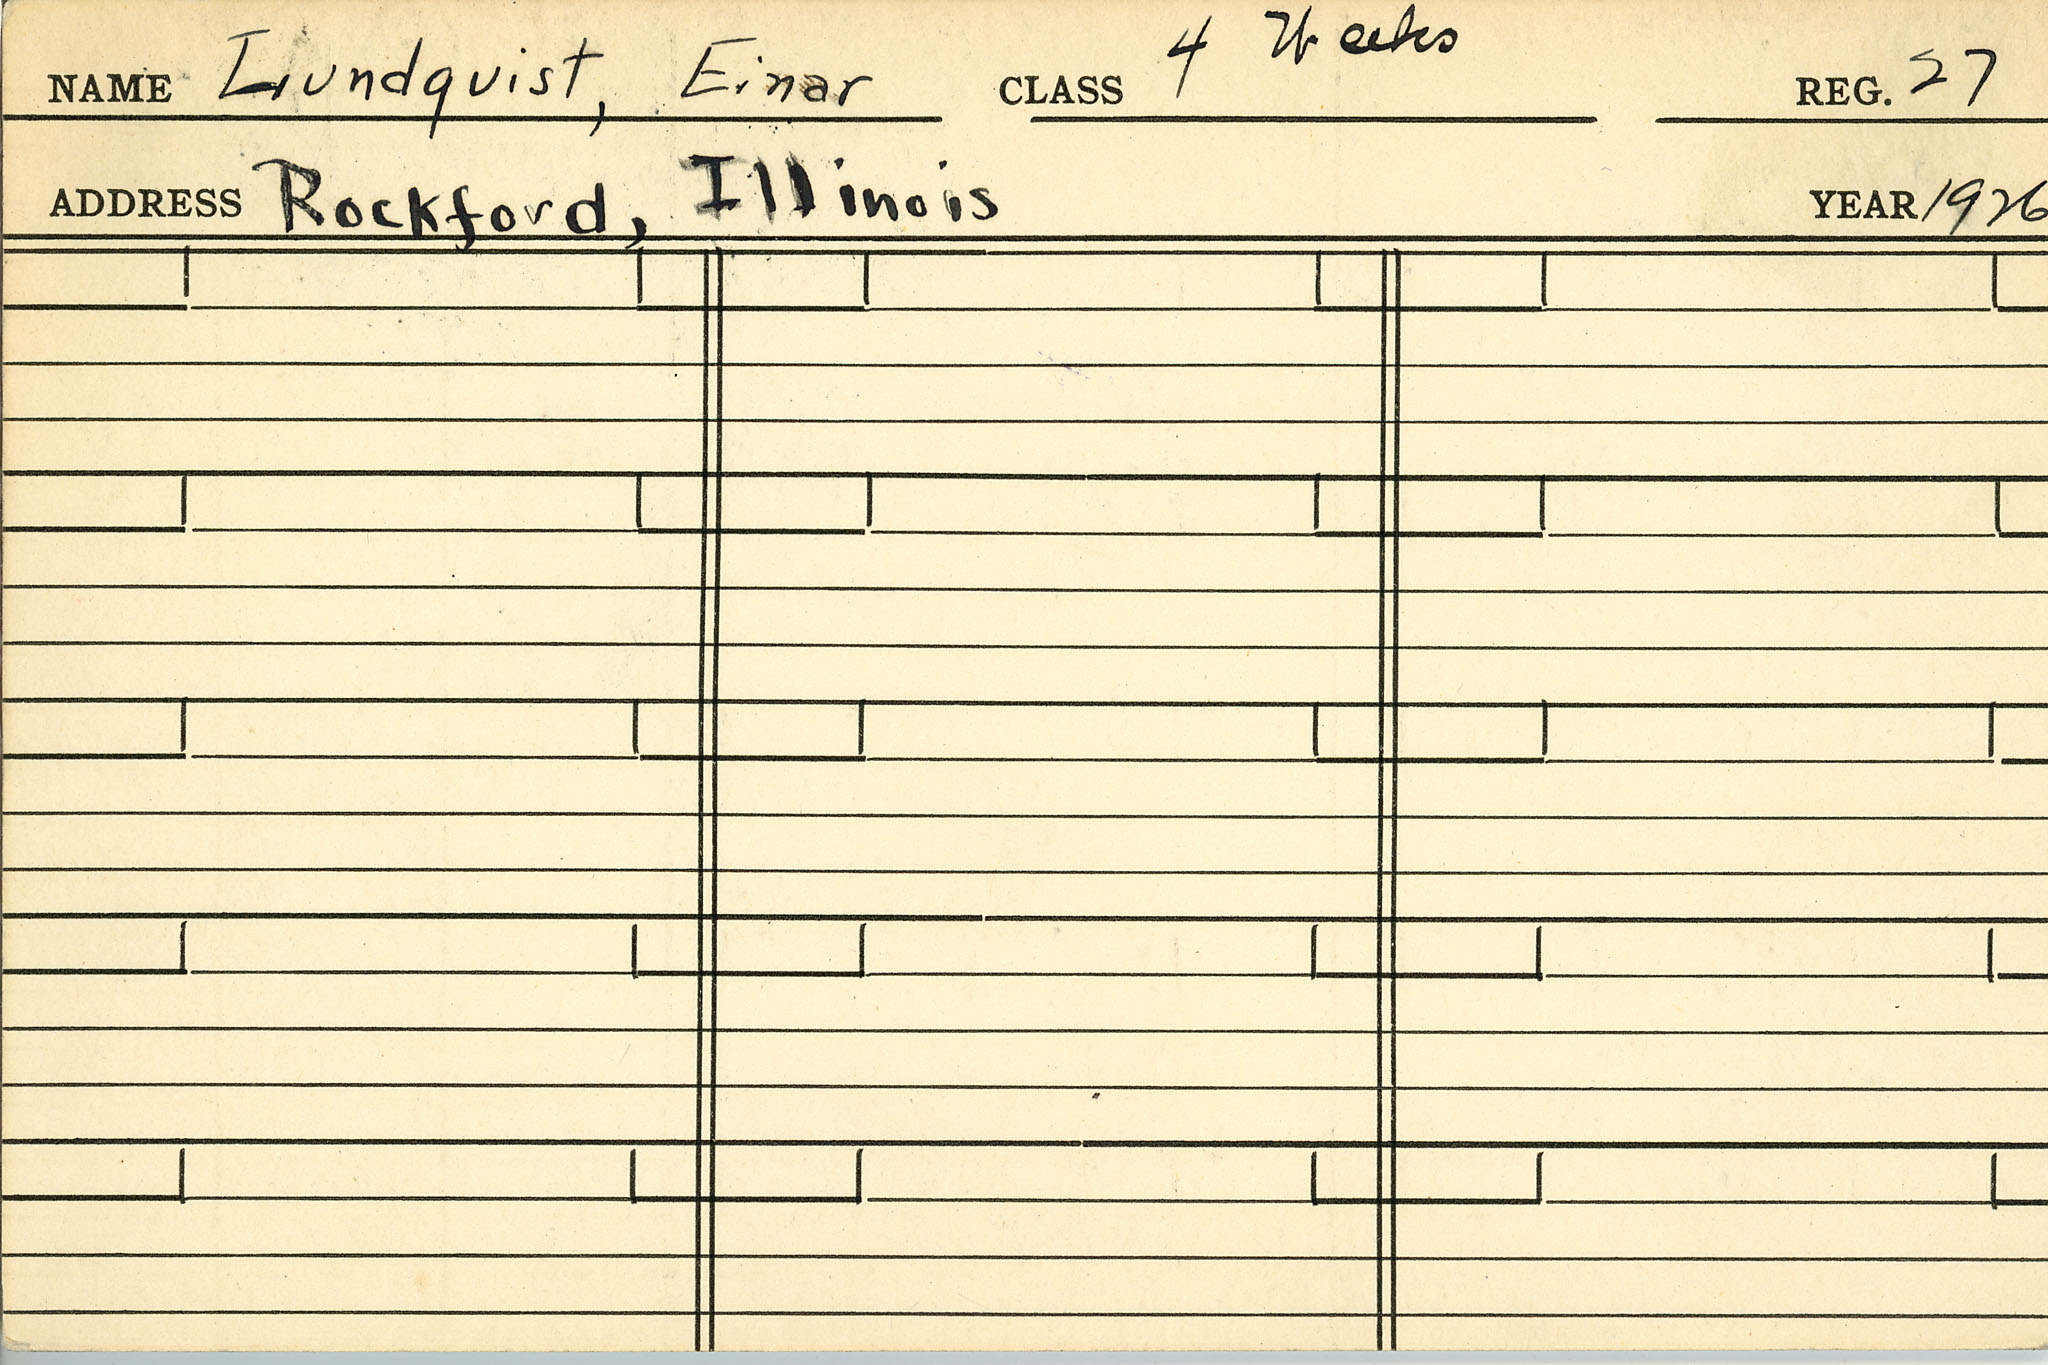 NAME Lundquist, Einar CLASS 4 Weeks REG. 27
ADDRESS Rockford, Illinois YEAR 1926